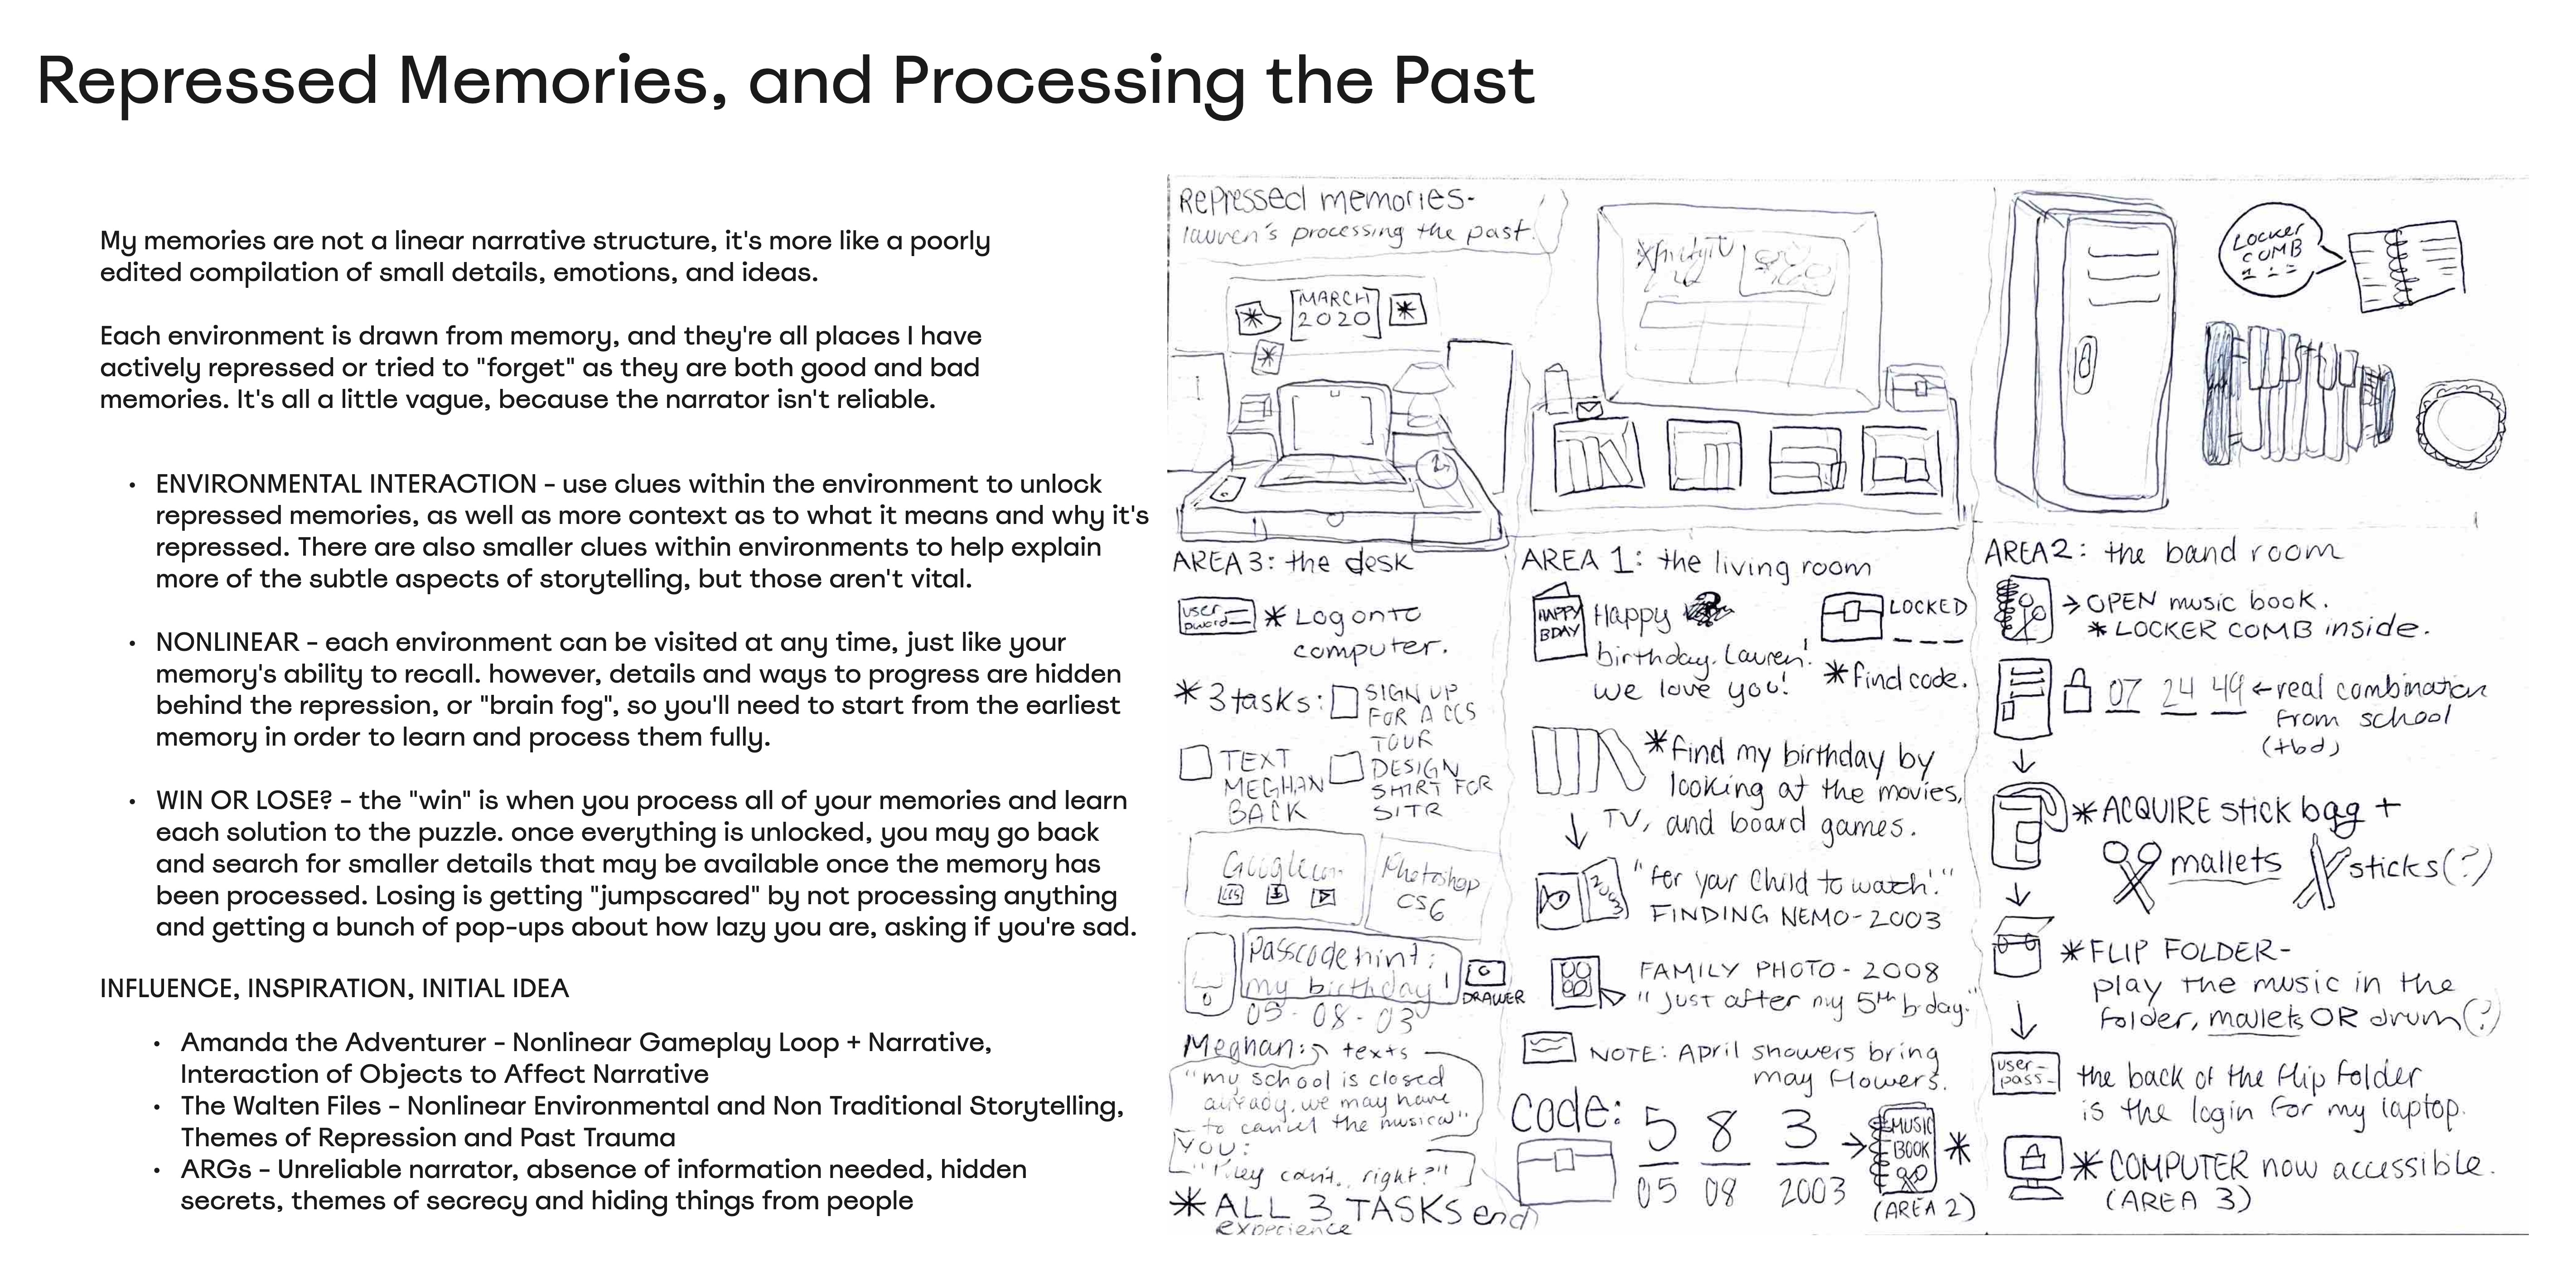 Repressed Memories, and Processing the Past
My memories are not a linear narrative structure, it's more like a poorly
edited compilation of small details, emotions, and ideas.
Each environment is drawn from memory, and they're all places I have
actively repressed or tried to "forget" as they are both good and bad
memories. It's all a little vague, because the narrator isn't reliable.
• ENVIRONMENTAL INTERACTION - use clues within the environment to unlock
repressed memories, as well as more context as to what it means and why it's
repressed. There are also smaller clues within environments to help explain
more of the subtle aspects of storytelling, but those aren't vital.
• NONLINEAR - each environment can be visited at any time, just like your
memory's ability to recall. however, details and ways to progress are hidden
behind the repression, or "brain fog", so you'll need to start from the earliest
memory in order to learn and process them fully.
• WIN OR LOSE? - the "win" is when you process all of your memories and learn
each solution to the puzzle. once everything is unlocked, you may go back
and search for smaller details that may be available once the memory has
been processed. Losing is getting "jumpscared" by not processing anything
and getting a bunch of pop-ups about how lazy you are, asking if you're sad.
INFLUENCE, INSPIRATION, INITIAL IDEA
• Amanda the Adventurer - Nonlinear Gameplay Loop + Narrative,
Interaction of Objects to Affect Narrative
• The Walten Files - Nonlinear Environmental and Non Traditional Storytelling,
Themes of Repression and Past Trauma
• ARGs - Unreliable narrator, absence of information needed, hidden
secrets, themes of secrecy and hiding things from people
Repressed memories-
lauren's processing the past.
MARCH
2020
AREA 3: the desk
user
pword
* Log onto
computer.
* 3 tasks:
SIGN UP
FOR A CCS
TOUR
TEXT
MEGHAN
BACK
DESIGN
SHIRT FOR
SITR
Google
Photoshop
CS6
passcode hint:
my birthday!
DRAWER
05-08-03
Meghan: texts
"my school is closed
already. we may have
to cancel the musical"
YOU:
"They can't.. right?"
* ALL 3 TASKS end
experience
XfinityTV
AREA 1: the living room
HAPPY
BDAY
Happy
birthday, Lauren!
we love you!
LOCKED
_ _ _
* find code.
* find my birthday by
looking at the movies,
TV, and board games.
2003
"for your child to watch!"
FINDING NEMO - 2003
FAMILY PHOTO - 2008
"just after my 5th bday."
NOTE: April showers bring
may flowers.
Code: 5 8 3
05 08 2003
MUSIC
BOOK
*
(AREA 2)
Locker
COMB
AREA 2: the band room
→ OPEN music book.
* LOCKER COMB inside.
07 24 49 ← real combination
from school
(tbd)
* ACQUIRE stick bag +
mallets sticks(?)
* FLIP FOLDER-
play the music in the
folder, mallets OR drum(?)
user-
pass-
the back of the flip folder
is the login for my laptop.
* COMPUTER now accessible.
(AREA 3)